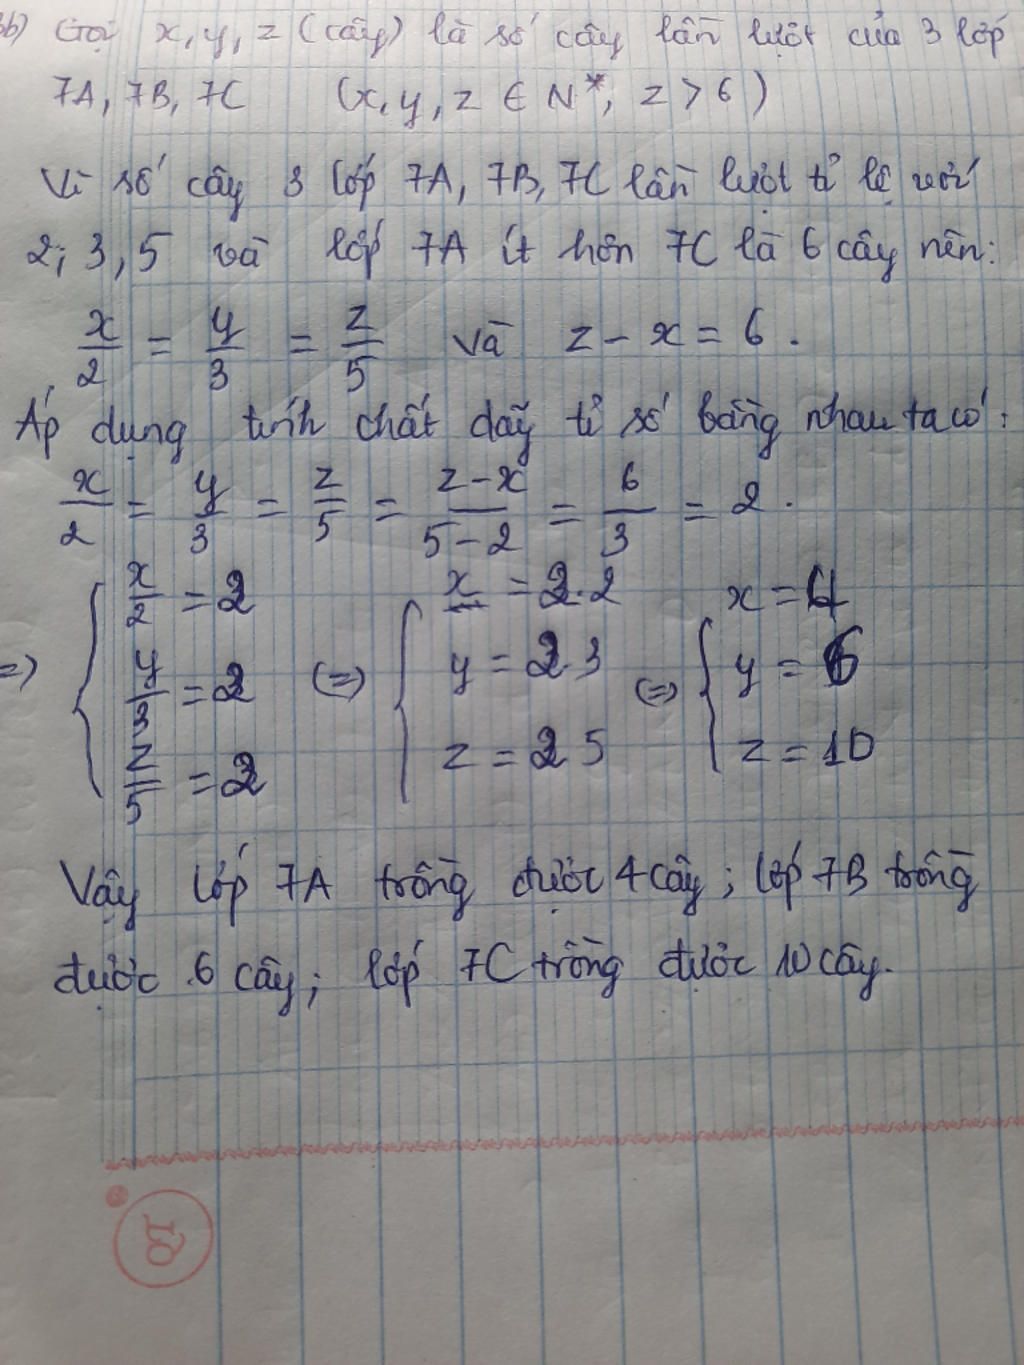 3b) Gọi x, y, z (cây) là số cây lần lượt của 3 lớp
7A, 7B, 7C (x, y, z ∈ N*, z > 6)
Vì số cây 3 lớp 7A, 7B, 7C lần lượt tỉ lệ với
2; 3, 5 và lớp 7A ít hơn 7C là 6 cây nên:
x/2 = y/3 = z/5 và z - x = 6.
Áp dụng tính chất dãy tỉ số bằng nhau ta có:
x/2 = y/3 = z/5 = z-x/5-2 = 6/3 = 2.
x/2 = 2 x = 2.2 x = 4
=> y/3 = 2 (=) y = 2.3 (=) y = 6
z/5 = 2 z = 2 5 z = 10
Vậy lớp 7A trồng được 4 cây; lớp 7B trồng
được 6 cây; lớp 7C trồng được 10 cây.